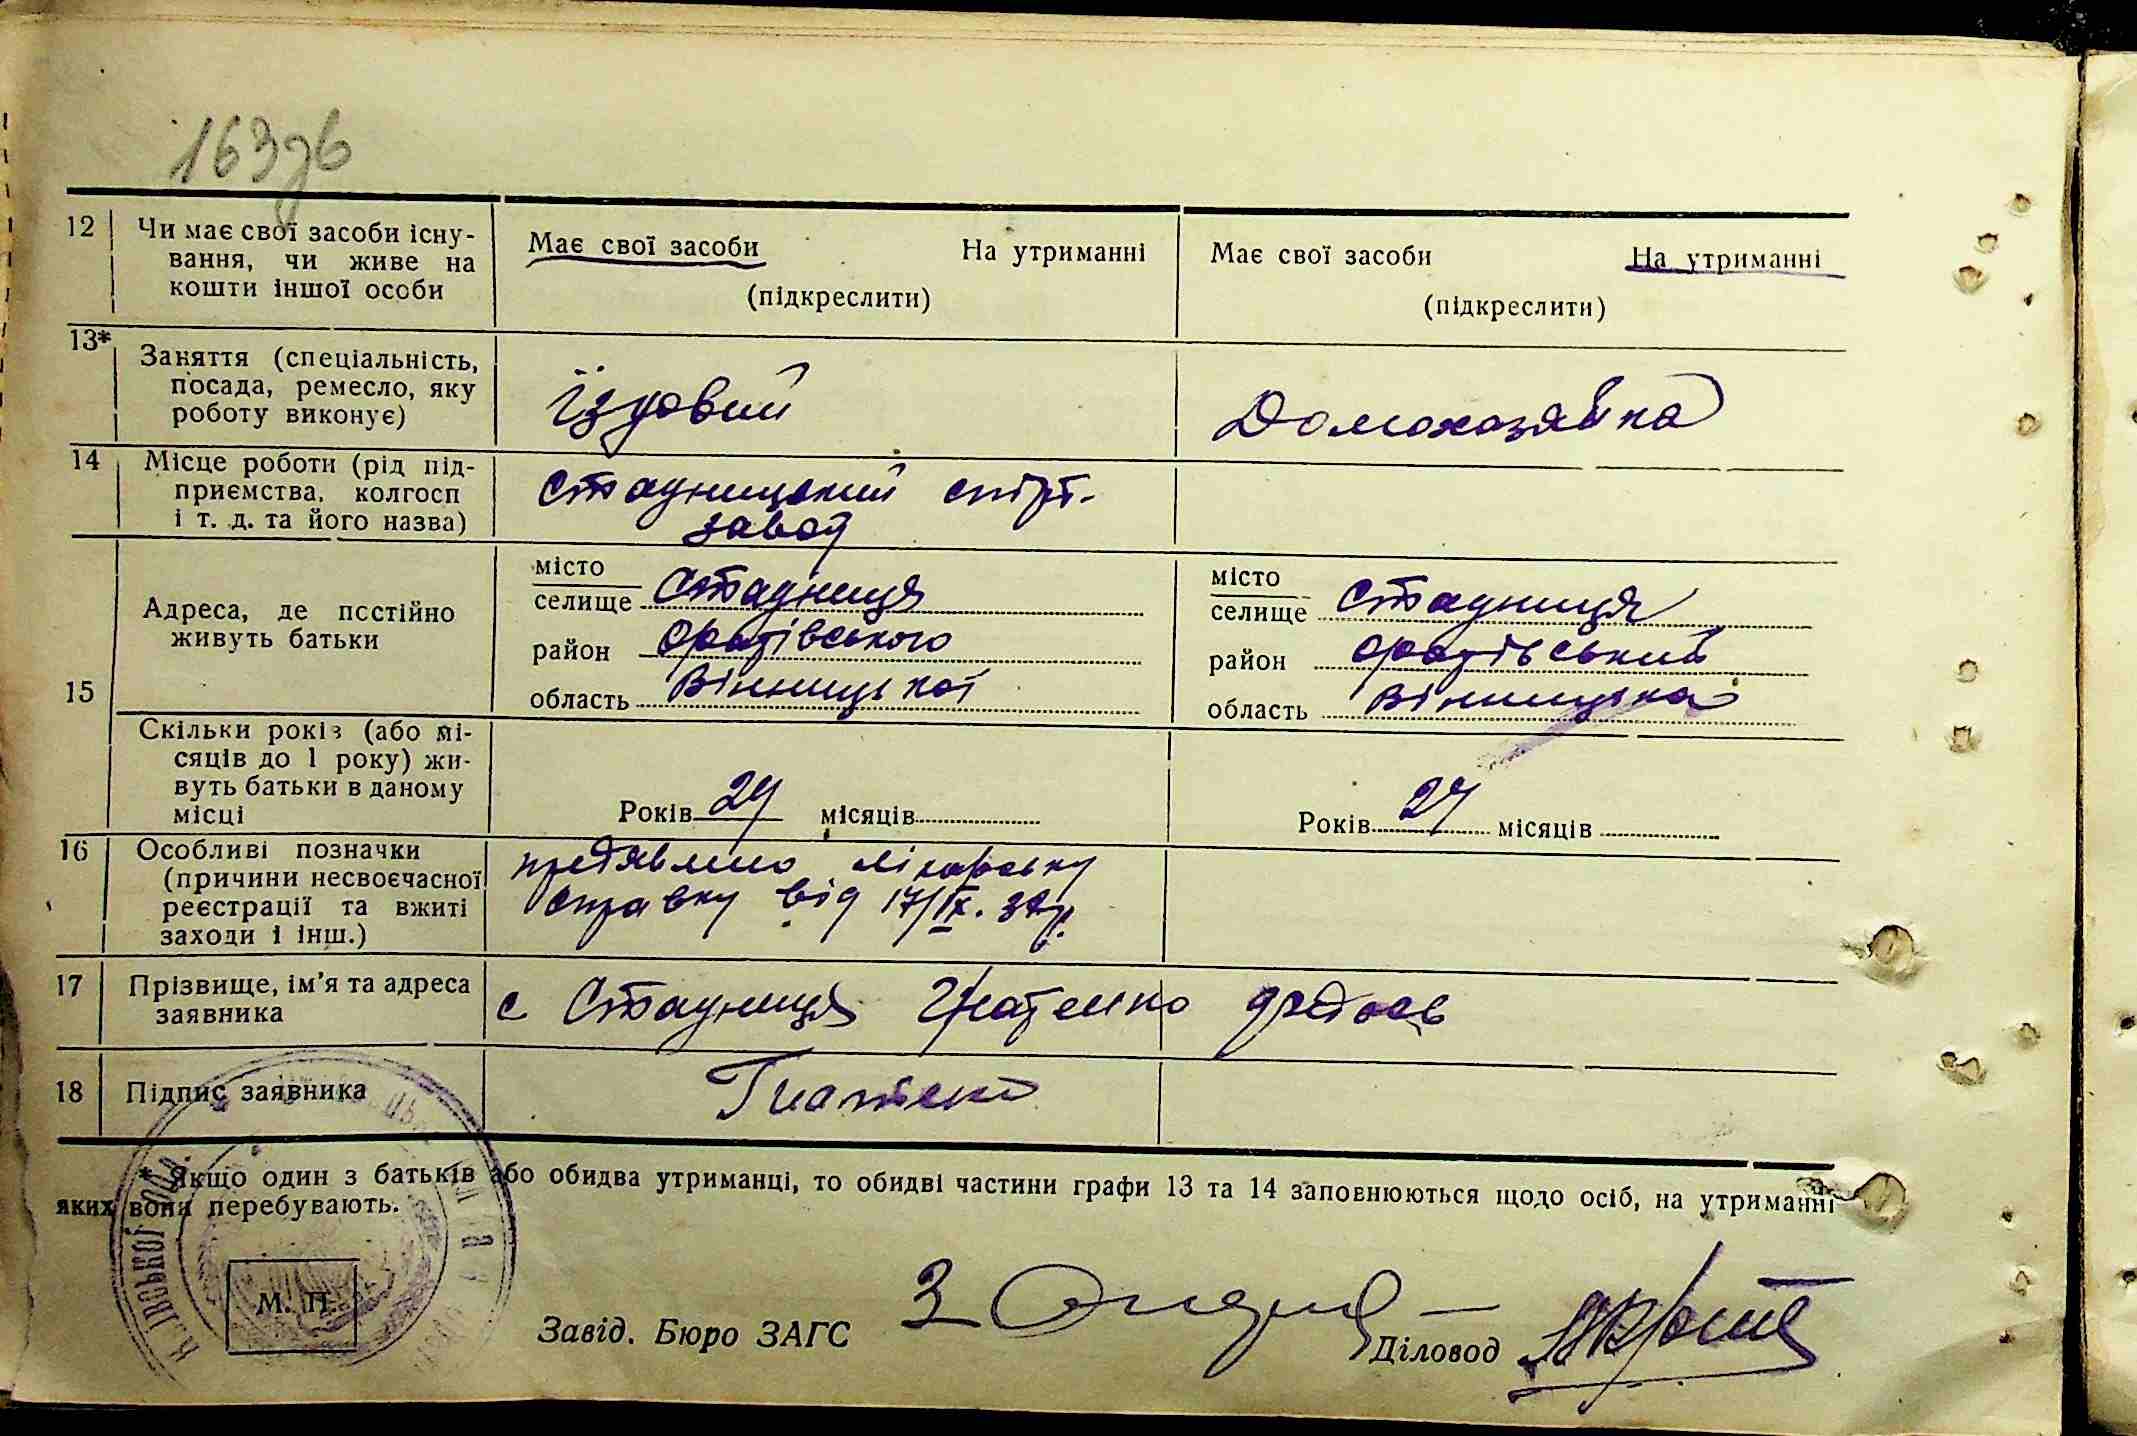 163зв
12 Чи має свої засоби існу-
вання, чи живе на
кошти іншої особи
Має свої засоби На утриманні
(підкреслити)
Має свої засоби На утриманні
(підкреслити)
13* Заняття (спеціальність,
посада, ремесло, яку
роботу виконує)
їздовий
Домохозяйка
14 Місце роботи (рід під-
приємства, колгосп
і т. д. та його назва)
Стадницький спірт-
завод
15
Адреса, де постійно
живуть батьки
місто
селище Стадниця
район Оратівського
область Вінницької
місто
селище Стадниця
район Оратівський
область Вінницька
Скільки років (або мі-
сяців до 1 року) жи-
вуть батьки в даному
місці
Років місяців
Років місяців
16 Особливі позначки
(причини несвоєчасної
реєстрації та вжиті
заходи і інш.)
предявлено лікарську
справку від 17/IX.
17 Прізвище, ім’я та адреса
заявника
с Стадниця Гнатенко Федось
18 Підпис заявника
Гнатенко
* Якщо один з батьків або обидва утриманці, то обидві частини графи 13 та 14 заповнюються щодо осіб, на утриманні
яких вони перебувають.
М. П.
Завід. Бюро ЗАГС
Діловод